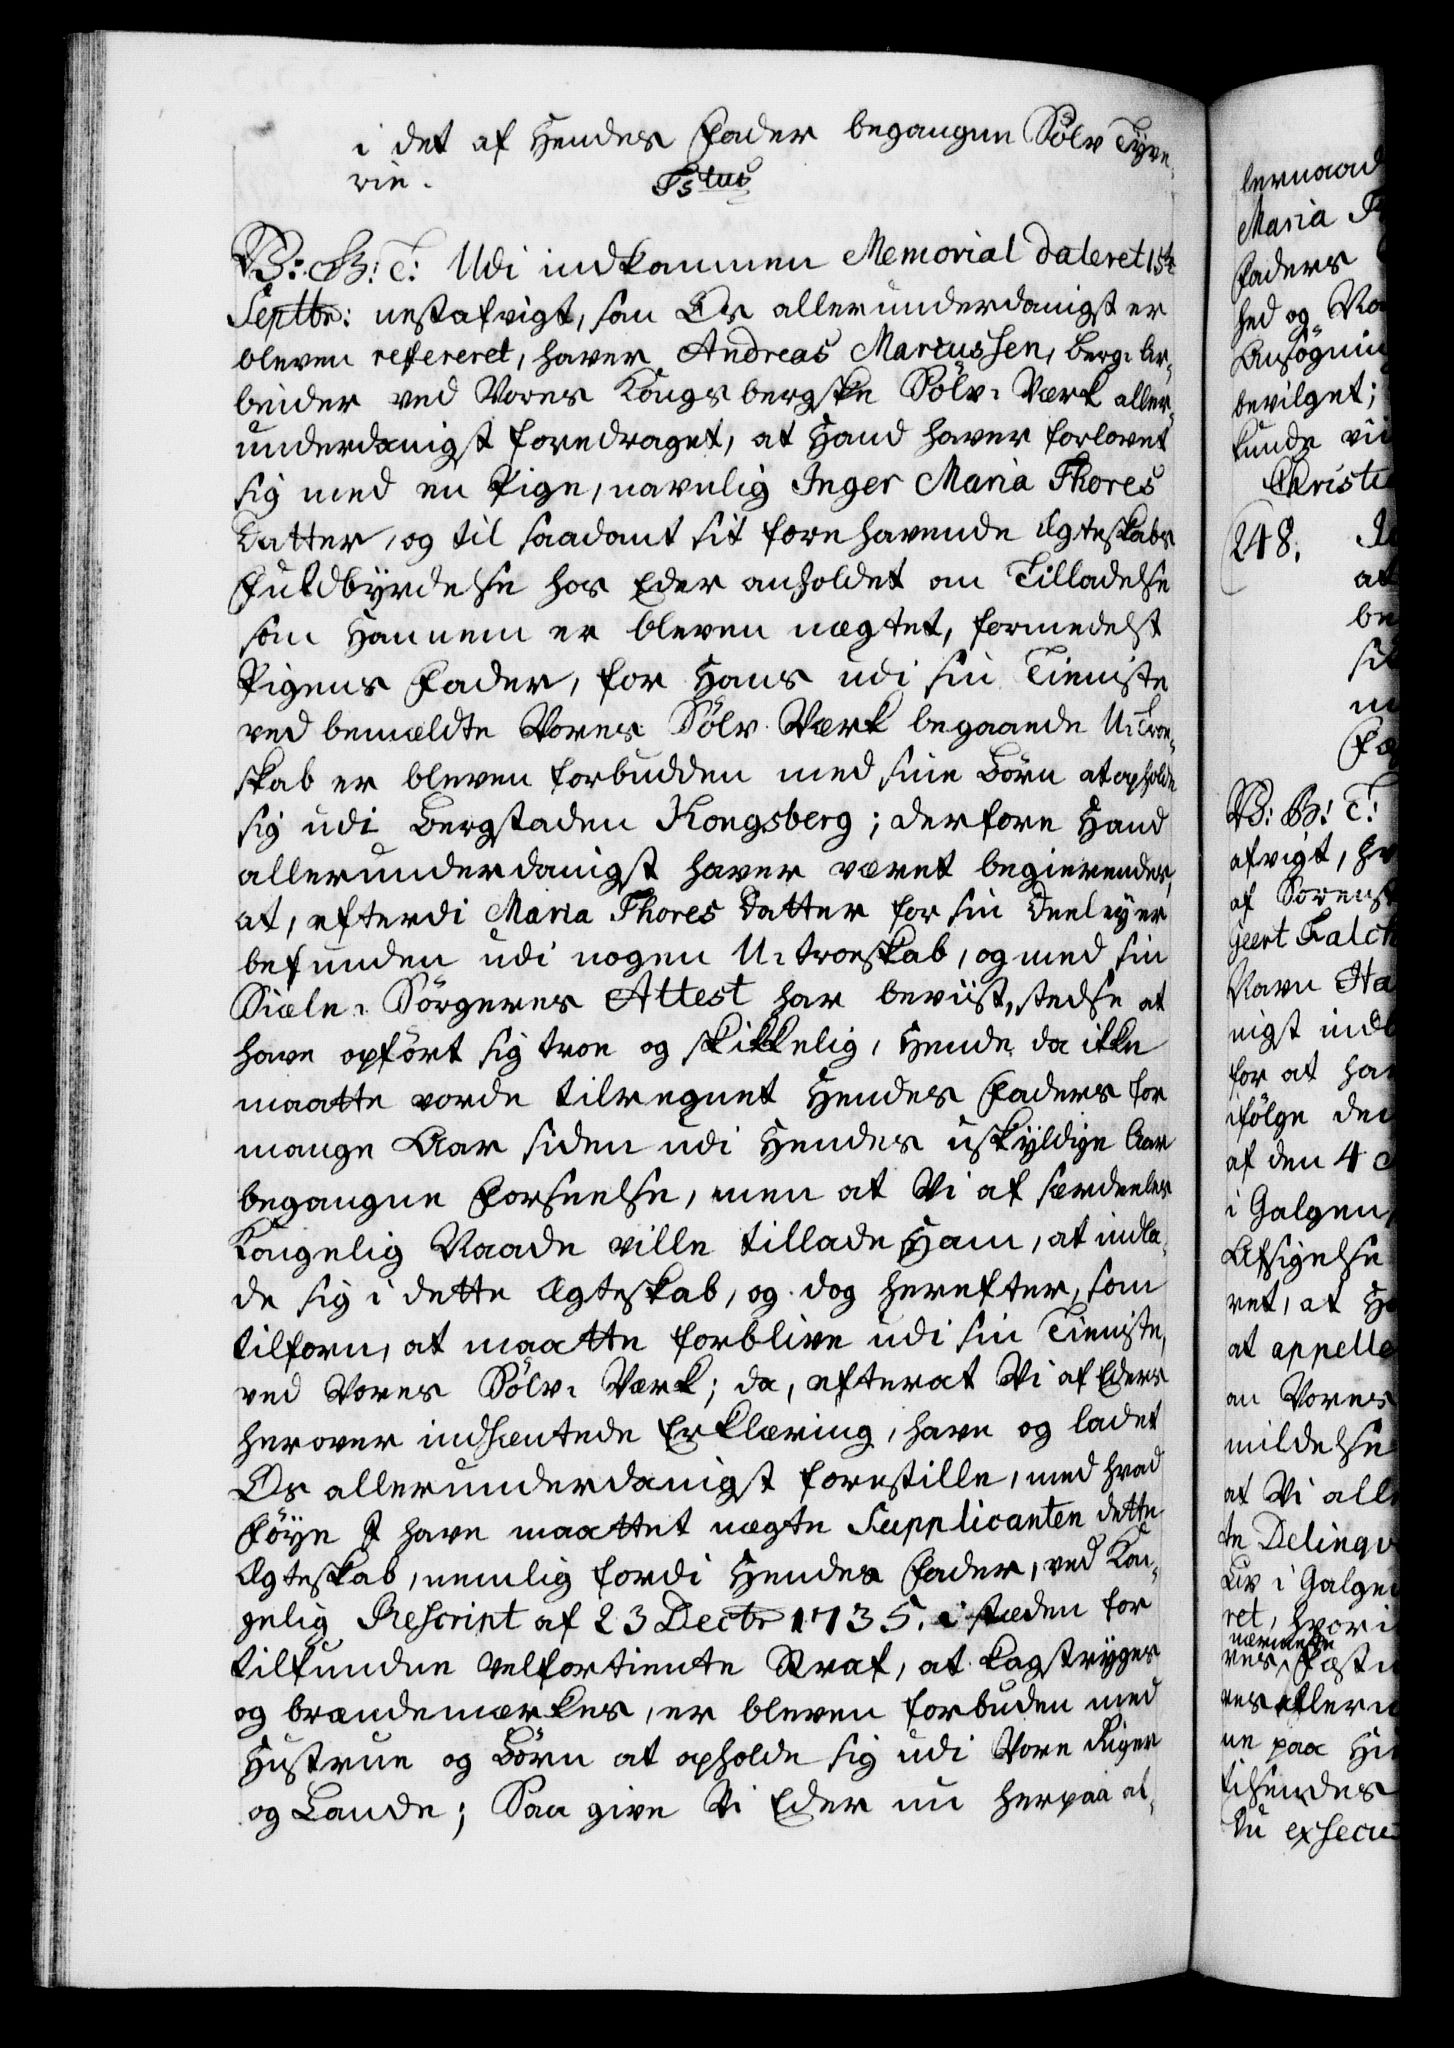 i det af Hendes Fader begangne Sølv Tyve-
rie.
Tstus
V: G: T: Udi indkommen Memorial dateret 15de
Septbr: nestafvigt, som Os allerunderdanigst er
bleven refereret, haver Andreas Marcussen, berg-Ar-
beider ved Vores Kongsbergske Sølv-Værk aller-
underdanigst foredraget, at Hand haver forlovet
sig med en Pige, navnlig Inger Maria Thores
Datter, og til saadant sit forehavende Ægteskabs
Fuldbyrdelse hos Eder anholdet om Tilladelse
som Hannem er bleven nægtet, formedelst
Pigens Fader, for Hans udi sin Tieniste
ved bemældte Vores Sølv-Værk begaaede U-troe-
skab er bleven forbudden med sine Børn at opholde
sig udi Bergstaden Kongsberg; Derfore Hand
allerunderdanigst haver været begierendes,
at, efterdi Maria Thores Datter for sin Deel ey er
befunden udi nogen U-troeskab, og med sin
Siæle-Sørgeres Attest har beviist, stedse at
have opført sig troe og skikkelig, Hende da ikke
maatte vorde tilregnet Hendes Faders for
mange Aar siden udi Hendes uskyldige Aar
begangne Forseelse, men at Vi af særdeeles
Kongelig Naade ville tillade Ham, at indla-
de sig i dette Ægteskab, og dog herefter, som
tilforn, at maatte forblive udi sin Tieniste,
ved Vores Sølv-Værk; da, efterat Vi af Eders
herover indhæntede Erklæring, have og ladet
Os allerunderdanigst forestille, med hvad
Føye I have maattet nægte Supplicanten dette
Ægteskab, nemlig fordi Hendes Fader, ved Kon-
gelig Rescript af 23 Dectr 1735. i stæden for
tilfundne velfortiente Straf, at kagstryges
og brændemærkes, er bleven forbuden med
Hustrue og Børn at opholde sig udi Vore Riger
og Lande; Saa give Vi Eder nu herpaa al-
lernaad
Maria
Faders
hed og
Ansøgnin
bevilget;
kunde vii
Christi
248.
at
be
sit
V: G: T:
afvigt,
af Sorensk
geert Falch
Navn Ha
nigst indb
for at ha
ifølge den
af den 4
i Galgen,
Afsigelse
ret, at
at appelle
an Vores
mildelse
at Vi all
te Delinqv
Liv i Galgen
ret, hvori
nærmeste
res Fæstn
ne paa
tilsendes
Du execu